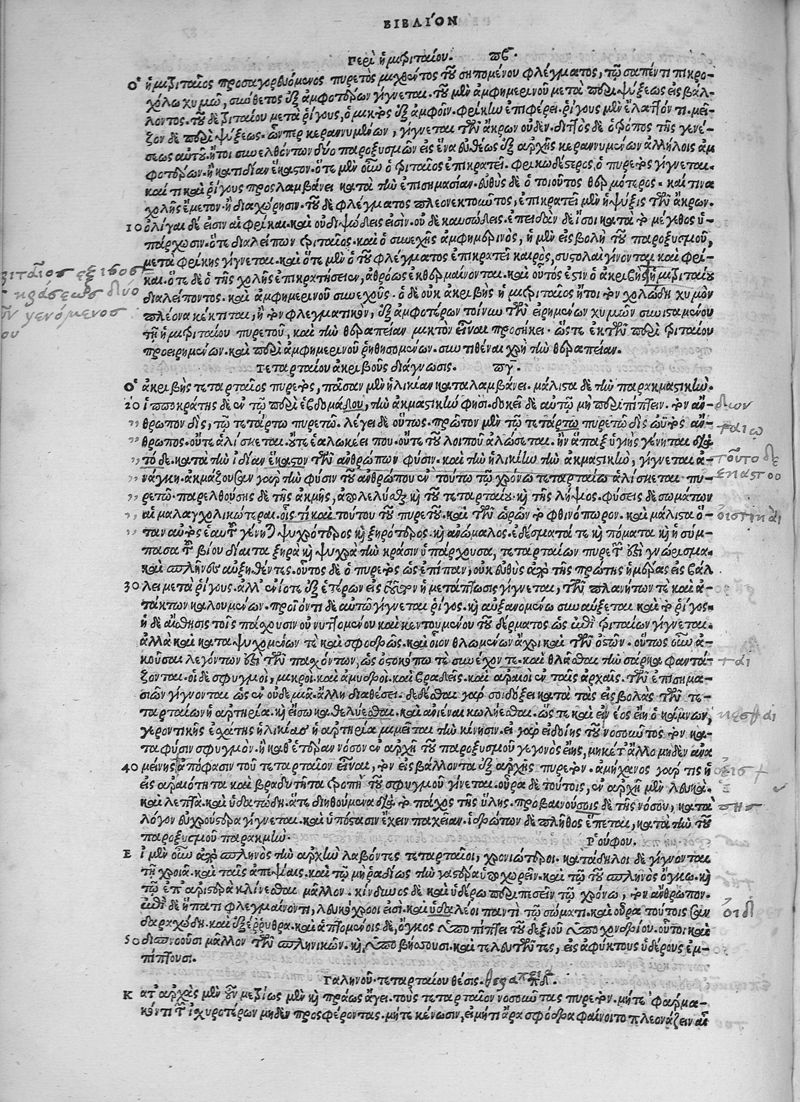 ΒΙΒΛΙ΄ΟΝ
Περὶ ἡμιτριταίου.
Ὁ ἡμιτριταῖος προσαγορευόμενος πυρετὸς μιχθέντος τοῦ σηπομένου φλέγματος, τῷ σαπέντι πικρο-
χόλῳ χυμῷ, σύνθετος ἐξ ἀμφοτέρων γίνεται. τοῦ μὲν ἀμφημερινοῦ μετὰ περιψύξεως εἰσβάλ-
λοντος. τοῦ δὲ τριταίου μετὰ ῥίγους, ὁ μικτὸς ἐξ ἀμφοῖν. φρίκην ἐπιφέρει. ῥίγους μὲν ἔλαττόν τι. μεῖ-
ζον δὲ περιψύξεως. ὧνπερ κεραννυμένων, γίγνεται τῶν ἄκρων οὐδέν. διττὸς δὲ ὁ τρόπος τῆς γενέ-
σεως αὐτοῦ. ἤτοι συνελθόντων δύο παροξυσμῶν εἰς ἕνα εὐθέως ἐξ ἀρχῆς κεραννυμένων ἀλλήλοις ἀμ
φοτέρων. ἢ κατ' ἰδίαν ἕκαστον. ὅτε μὲν οὖν ὁ τριταῖος ἐπικρατεῖ. φρικωδέστερος, ὁ πυρετὸς γίγνεται.
καί τι καὶ ῥίγους προσλαμβάνει κατὰ τὴν ἐπισημασίαν. εὐθὺς δὲ ὁ τοιοῦτος θερμότερος. καί τινα
χολῆς ἔμετον. ἢ διαχώρησιν. τοῦ δὲ φλέγματος πλεονεκτοῦντος, ἐπικρατεῖ μὲν ἡ ψύξις τῶν ἄκρων.
10 ὀλίγαι δέ εἰσιν αἱ φρίκαι. καὶ οὐ διψώδεις εἰσὶν. οὐ δὲ καυσώδεις. ἐπειδὰν δὲ ἴσοι κατὰ τὸ μέγεθος ὑ-
πάρχωσιν. ὅ τε διαλείπων τριταῖος. καὶ ὁ συνεχὴς ἀμφημερινὸς, ἡ μὲν εἰσβολὴ τοῦ παροξυσμοῦ,
μετὰ φρίκης γίνεται. καὶ ὅτε μὲν ὁ τοῦ φλέγματος ἐπικρατεῖ καιρὸς, συστολαὶ γίνονται καὶ φρῖ-
και. ὅτε δὲ ὁ τῆς χολῆς ἐπικρατήσειεν, ἀθρόως ἐκθερμαίνονται. καὶ οὗτός ἐστιν ὁ ἀκριβὴς ἡμιτριταῖος
διαλείποντος. καὶ ἀμφημερινοῦ συνεχοῦς. ὁ δὲ οὐκ ἀκριβὴς ἡμιτριταῖος ἤτοι τὸν χολώδη χυμὸν
πλέονα κέκτηται, ἢ τὸν φλεγματικόν, ἐξ ἀμφοτέρων τοίνυν τῶν εἰρημένων χυμῶν συνισταμένου
τοῦ ἡμιτριταίου πυρετοῦ, καὶ τὴν θεραπείαν μικτὸν εἶναι προσήκει. ὥστε ἐκ τῶν περὶ τριταίου
προειρημένων. καὶ περὶ ἀμφημερινοῦ ῥηθησομένων. συντιθέναι χρὴ τὴν θεραπείαν.
Τεταρταίου ἀκριβοῦς διάγνωσις.
Ὁ ἀκριβὴς τεταρταῖος πυρετὸς, πᾶσαν μὲν ἡλικίαν καταλαμβάνει. μάλιστα δὲ τὴν παρακμαστικήν.
20 ἱπποκράτης δὲ ἐν τῷ περὶ ἑβδομάδου, τὴν ἀκμαστικήν φησι. δοκεῖ δὲ αὐτῷ μὴ περιπίπτειν. τὸν ἄν-
θρωπον δὶς, τῷ τεταρτῳ πυρετῷ. λέγει δὲ οὕτως. πρῶτον μὲν τῷ τετάρτῳ πυρετῷ δὶς ωὐτὸς ἄν-
θρωπος. οὔτε ἁλίσκεται. οὔτε ἑαλώκει που. οὔτε τοῦ λοιποῦ ἁλώσεται. ἢν ἅπαξ ὑγιὴς γένηται διὰ
το δε. κατὰ τὴν ἰδίαν ἕκαστον τῶν ἀνθρώπων φύσιν. καὶ τὴν ἡλικίην τὴν ἀκμαστικήν, γίγνεται ἀ-
νάγκη. ἀκμάζουσαν γὰρ τὴν φύσιν τοῦ ἀνθρώπου ἐν τούτῳ τῷ χρόνῳ τεταρταίῳ ἁλίσκεται πυ-
ρετῷ. παρελθούσης δὲ τῆς ἀκμῆς, ἀπολέλυται καὶ τοῦ τεταρταίου. καὶ τῆς λήψιος. φύσεις δὲ σωμάτων
αἱ μελαγχολικώτεραι. οἷς τι καὶ τούτου τοῦ πυρετοῦ. καὶ τῶν ὡρῶν τὸ φθινόπωρον. καὶ μάλιστα ὅ-
ταν αὐτὸς ἑαυτοῦ γένηται ψυχρότερος καὶ ξηρότερος. καὶ ἀνώμαλος. ἐδέσματά τε καὶ πόματα καὶ ἡ σύμ-
πασα τοῦ βίου δίαιτα ξηρὰ καὶ ψυχρὰ τὴν κρᾶσιν ὑπάρχουσα, τεταρταίων πυρετῶν ἐστὶ γνώρισμα.
καὶ σπλῆνος αὐξηθέντες. οὗτος δὲ ὁ πυρετὸς ὡς ἐπίπαν, οὐκ εὐθὺς ἀπὸ τῆς πρώτης ἡμέρας εἰσβάλ
30 λει μετὰ ῥίγους. ἀλλ' ἐνίοτε ἐξ ἑτέρων εἰς ἕτερον ἡ μετάπτωσις γίγνεται, τῶν πλανήτων τε καὶ ἀ-
τάκτων καλουμένων. προϊόντι δὲ αὐτῷ γίγνεται ῥῖγος. καὶ αὐξανομένῳ συναύξεται. καὶ τὸ ῥῖγος.
ἡ δὲ αἴσθησις τοῖς πάσχουσιν οὐ νυττομένου καὶ κεντουμένου τοῦ δέρματος ὡς ἐπὶ τριταίων γίγνεται.
ἀλλὰ καὶ καταψυχομένων τε καὶ σφοδρῶς. καὶ οἷον θλωμένων ἄχρι καὶ τῶν ὀστῶν. οὕτως οὖν ἀ-
κοῦσαι λεγόντων ἐστὶ τῶν πασχόντων, ὡς ὀστοκόπῳ τε συνέχοντο. καὶ θλᾶσθαι τὴν σάρκα φαντά-
ζονται. οἱ δὲ σφυγμοὶ, μικροὶ. καὶ ἀμυδροὶ. καὶ βραδεῖς. καὶ ἀραιοὶ ἐν ταῖς ἀρχαῖς. τῶν ἐπισημα-
σιῶν γίγνονται ὡς ἐν οὐδεμιᾷ ἄλλῃ διαθέσει. δεδέσθαι γάρ σοι δόξει κατὰ τὰς εἰσβολὰς τῶν τε-
ταρταίων ἡ ἀρτηρία. καὶ εἴσω καθέλκεσθαι. καὶ ἀνιέναι κωλύεσθαι. ὥστε καὶ ἐὰν νέος εἴη ὁ κάμνων,
γεροντικῆς ἐσχάτης ἡλικίας ἡ ἀρτηρία μιμεῖται τὴν κίνησιν. εἰ γὰρ εἰδοίης τοῦ νοσοῦντος τὸν κα-
τὰ φύσιν σφυγμὸν. ἢ καθ' ἑτέραν νόσον ἐν ἀρχῇ τοῦ παροξυσμοῦ γεγονὸς εἴης, μηκέτ' ἄλλο μηδὲν ἀνα
40 μείνῃς ἀπόφασιν τοῦ τεταρταῖον εἶναι, τὸν εἰσβάλλοντα ἐξ ἀρχῆς πυρετόν. ἀμήχανος γάρ τις ἡ
εἰς ἀραιότητα καὶ βραδυτῆτα τροπὴ τοῦ σφυγμοῦ γίνεται. οὖρα δὲ τούτοις, ἐν ἀρχῇ μὲν λευκὰ.
καὶ λεπτὰ. καὶ ὑδατώδη. ἅτε διηθούμενα διὰ τὸ πάχος τῆς ὕλης. προβαινούσης δὲ τῆς νόσου, κατὰ
λόγον εὐχρούστερα γίγνεται. καὶ ὑπόστασιν ἔχειν παχεῖαν. ἱδρώτων δὲ πλῆθος ἕπεται, κατὰ τὴν τοῦ
παροξυσμοῦ παρακμήν.
Ῥούφου.
Εἰ μὲν οὖν ἀπὸ σπληνὸς τὴν ἀρχὴν λαβόντες τεταρταῖοι, χρονιώτεροι. κατάδηλοι δὲ γίνονται
τῇ χροιᾷ. καὶ ταῖς ἀπεψίαις. καὶ τῷ μὴ ῥαδίως τὴν γαστέρα ὑποχωρεῖν. καὶ τῷ τοῦ σπληνὸς ὄγκῳ. καὶ
τῷ ἐπ' ἀριστερὰ κλίνεσθαι μᾶλλον. κίνδυνος δὲ καὶ ὑδέρῳ περιπεσεῖν τῷ χρόνῳ, τὸν ἄνθρωπον.
ἐπὶ δὲ ἥπατι φλεγμαίνοντι, λευκόχροοι εἰσὶ. καὶ ὑδαλέοι παντὶ τῷ σώματι. καὶ οὖρα τούτοις
ταραχώδη. καὶ ἐξέρυθρα. καὶ ἁπτομένοις δὲ, ὄγκος ὑποπίπτει τοῦ δεξιοῦ ὑποχονδρίου. οὗτοι καὶ
50 διαπνοοῦσι μᾶλλον τῶν σπληνικῶν. καὶ ὑποβήσσουσι. καὶ τελευτῶντες, εἰς ἀφύκτους ὑδέρους ἐμ-
πίπτουσι.
Γαληνοῦ. τεταρταίου θέσις.
Κατ' ἀρχὰς μὲν οὖν μετρίως μὲν καὶ πράως ἄγει. τοὺς τεταρταῖον νοσοῦντας πυρετόν. μήτε φάρμα-
κόν τι τῶν ἰσχυροτέρων μηδὲν προσφέροντας. μήτε κένωσιν, εἰ μή τι ἄρα σφόδρα φαίνοιτο πλεονάζειν αἷ